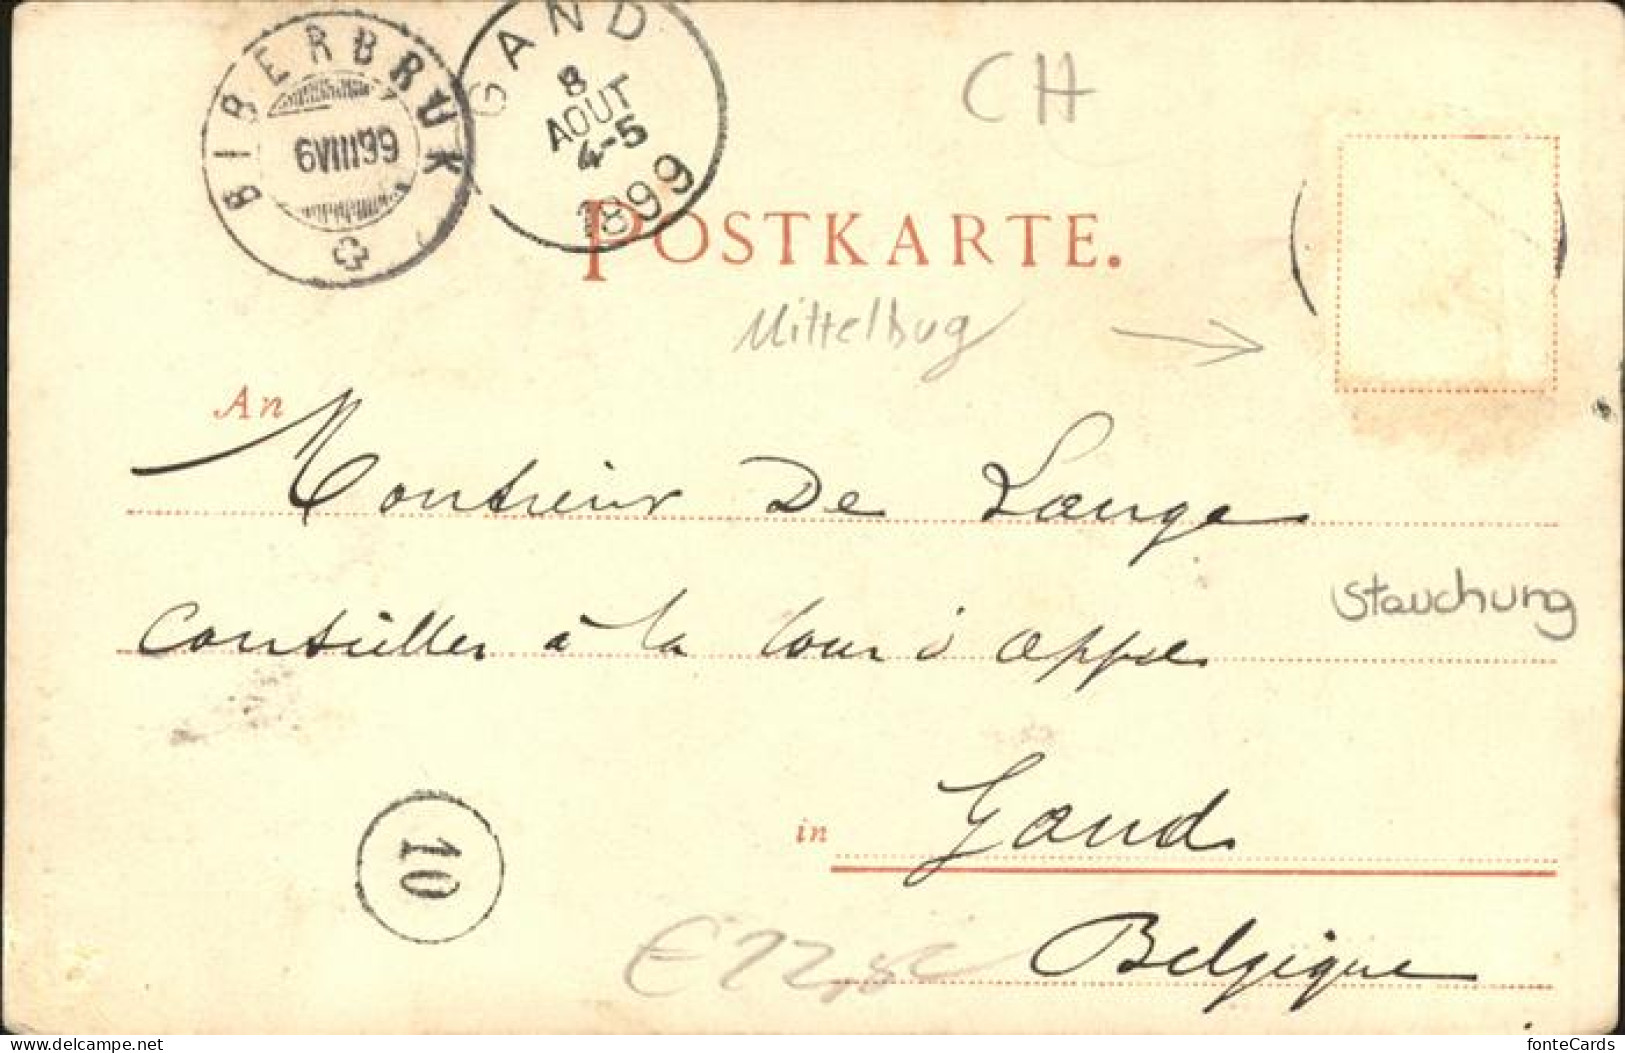 BIBERBRUK
6VIII99
GAND
8
AOUT
4-5
1899
CH
POSTKARTE.
Mittelbug
An
Monsieur De Lange
Stauchung
Conseiller à la Cour d'appel
in Gand
10
Belgique
fonteCards